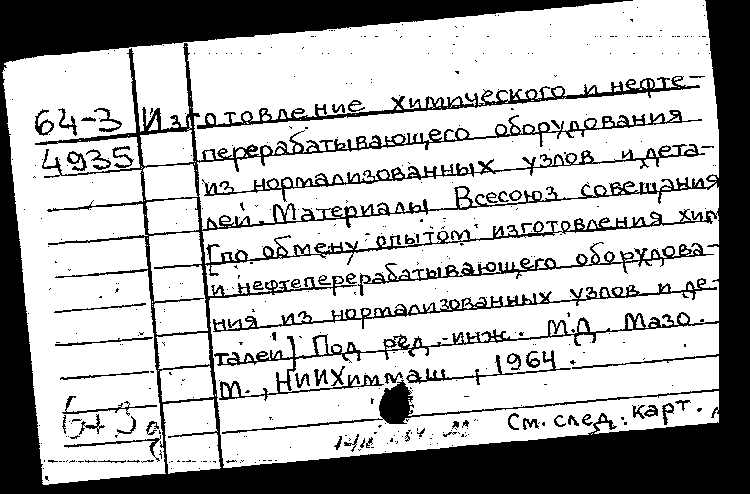 64-3 Изготовление химического и нефте-
4935 перерабатывающего оборудования
из нормализованных узлов и дета-
лей. Материалы Всесоюз совещания
[по обмену опытом изготовления хим
и нефтеперерабатывающего оборудова-
ния из нормализованных узлов и де-
талей]. Под ред. инж. М.Д. Мазо.
М., НИИХиммаш, 1964.
См. след. карт.